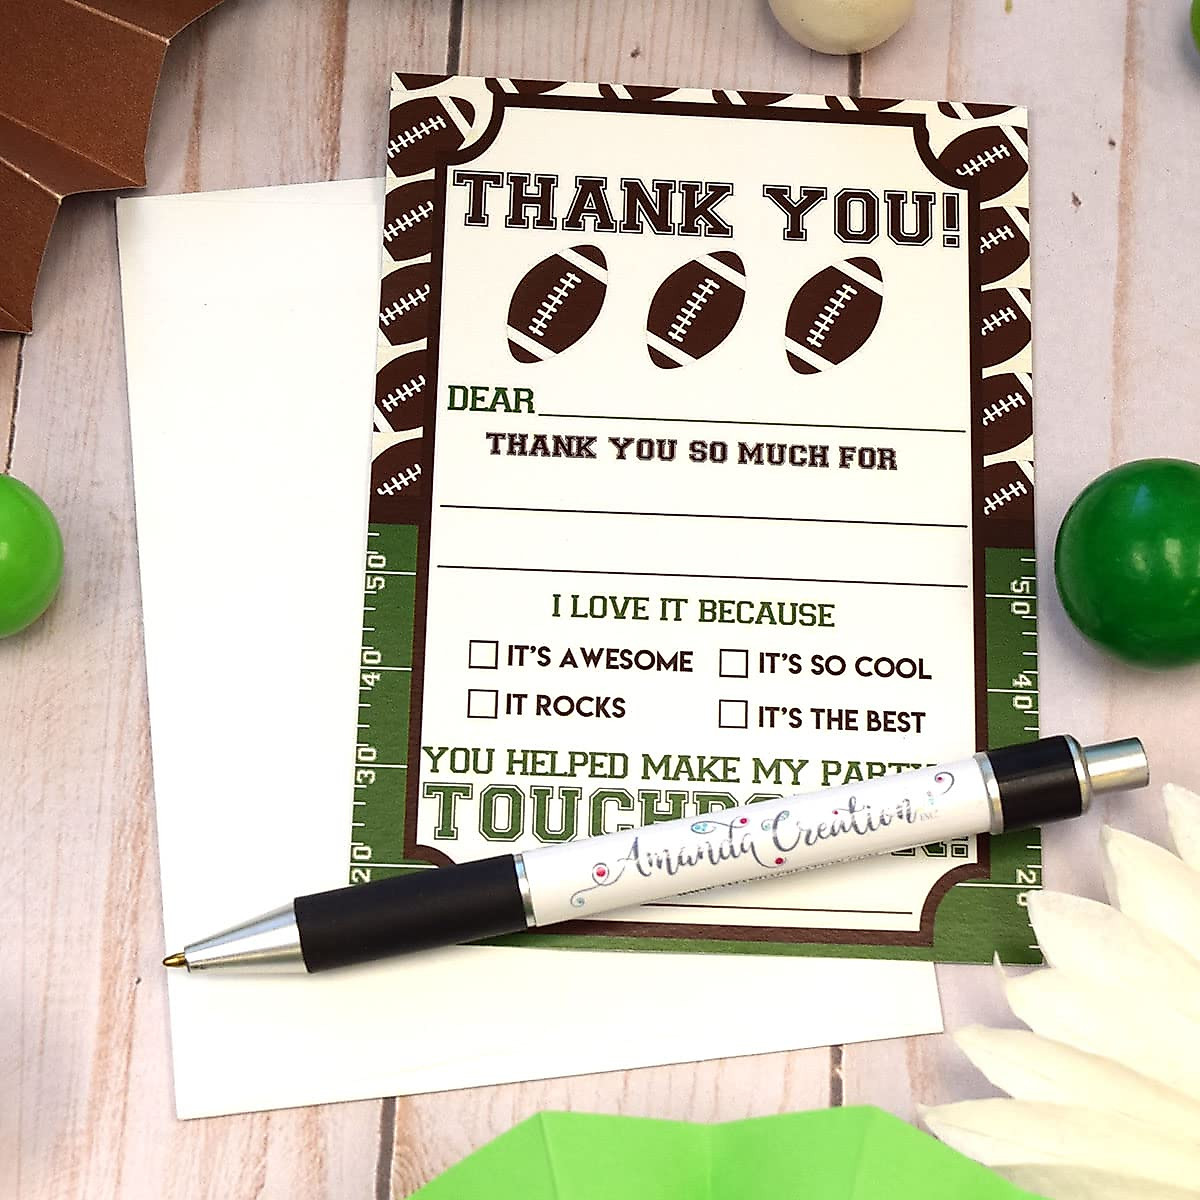 THANK YOU!
DEAR
THANK YOU SO MUCH FOR
I LOVE IT BECAUSE
IT'S AWESOME
IT'S SO COOL
IT ROCKS
IT'S THE BEST
YOU HELPED MAKE MY PARTY
Amanda Creation INC.
50
40
30
20
50
40
20